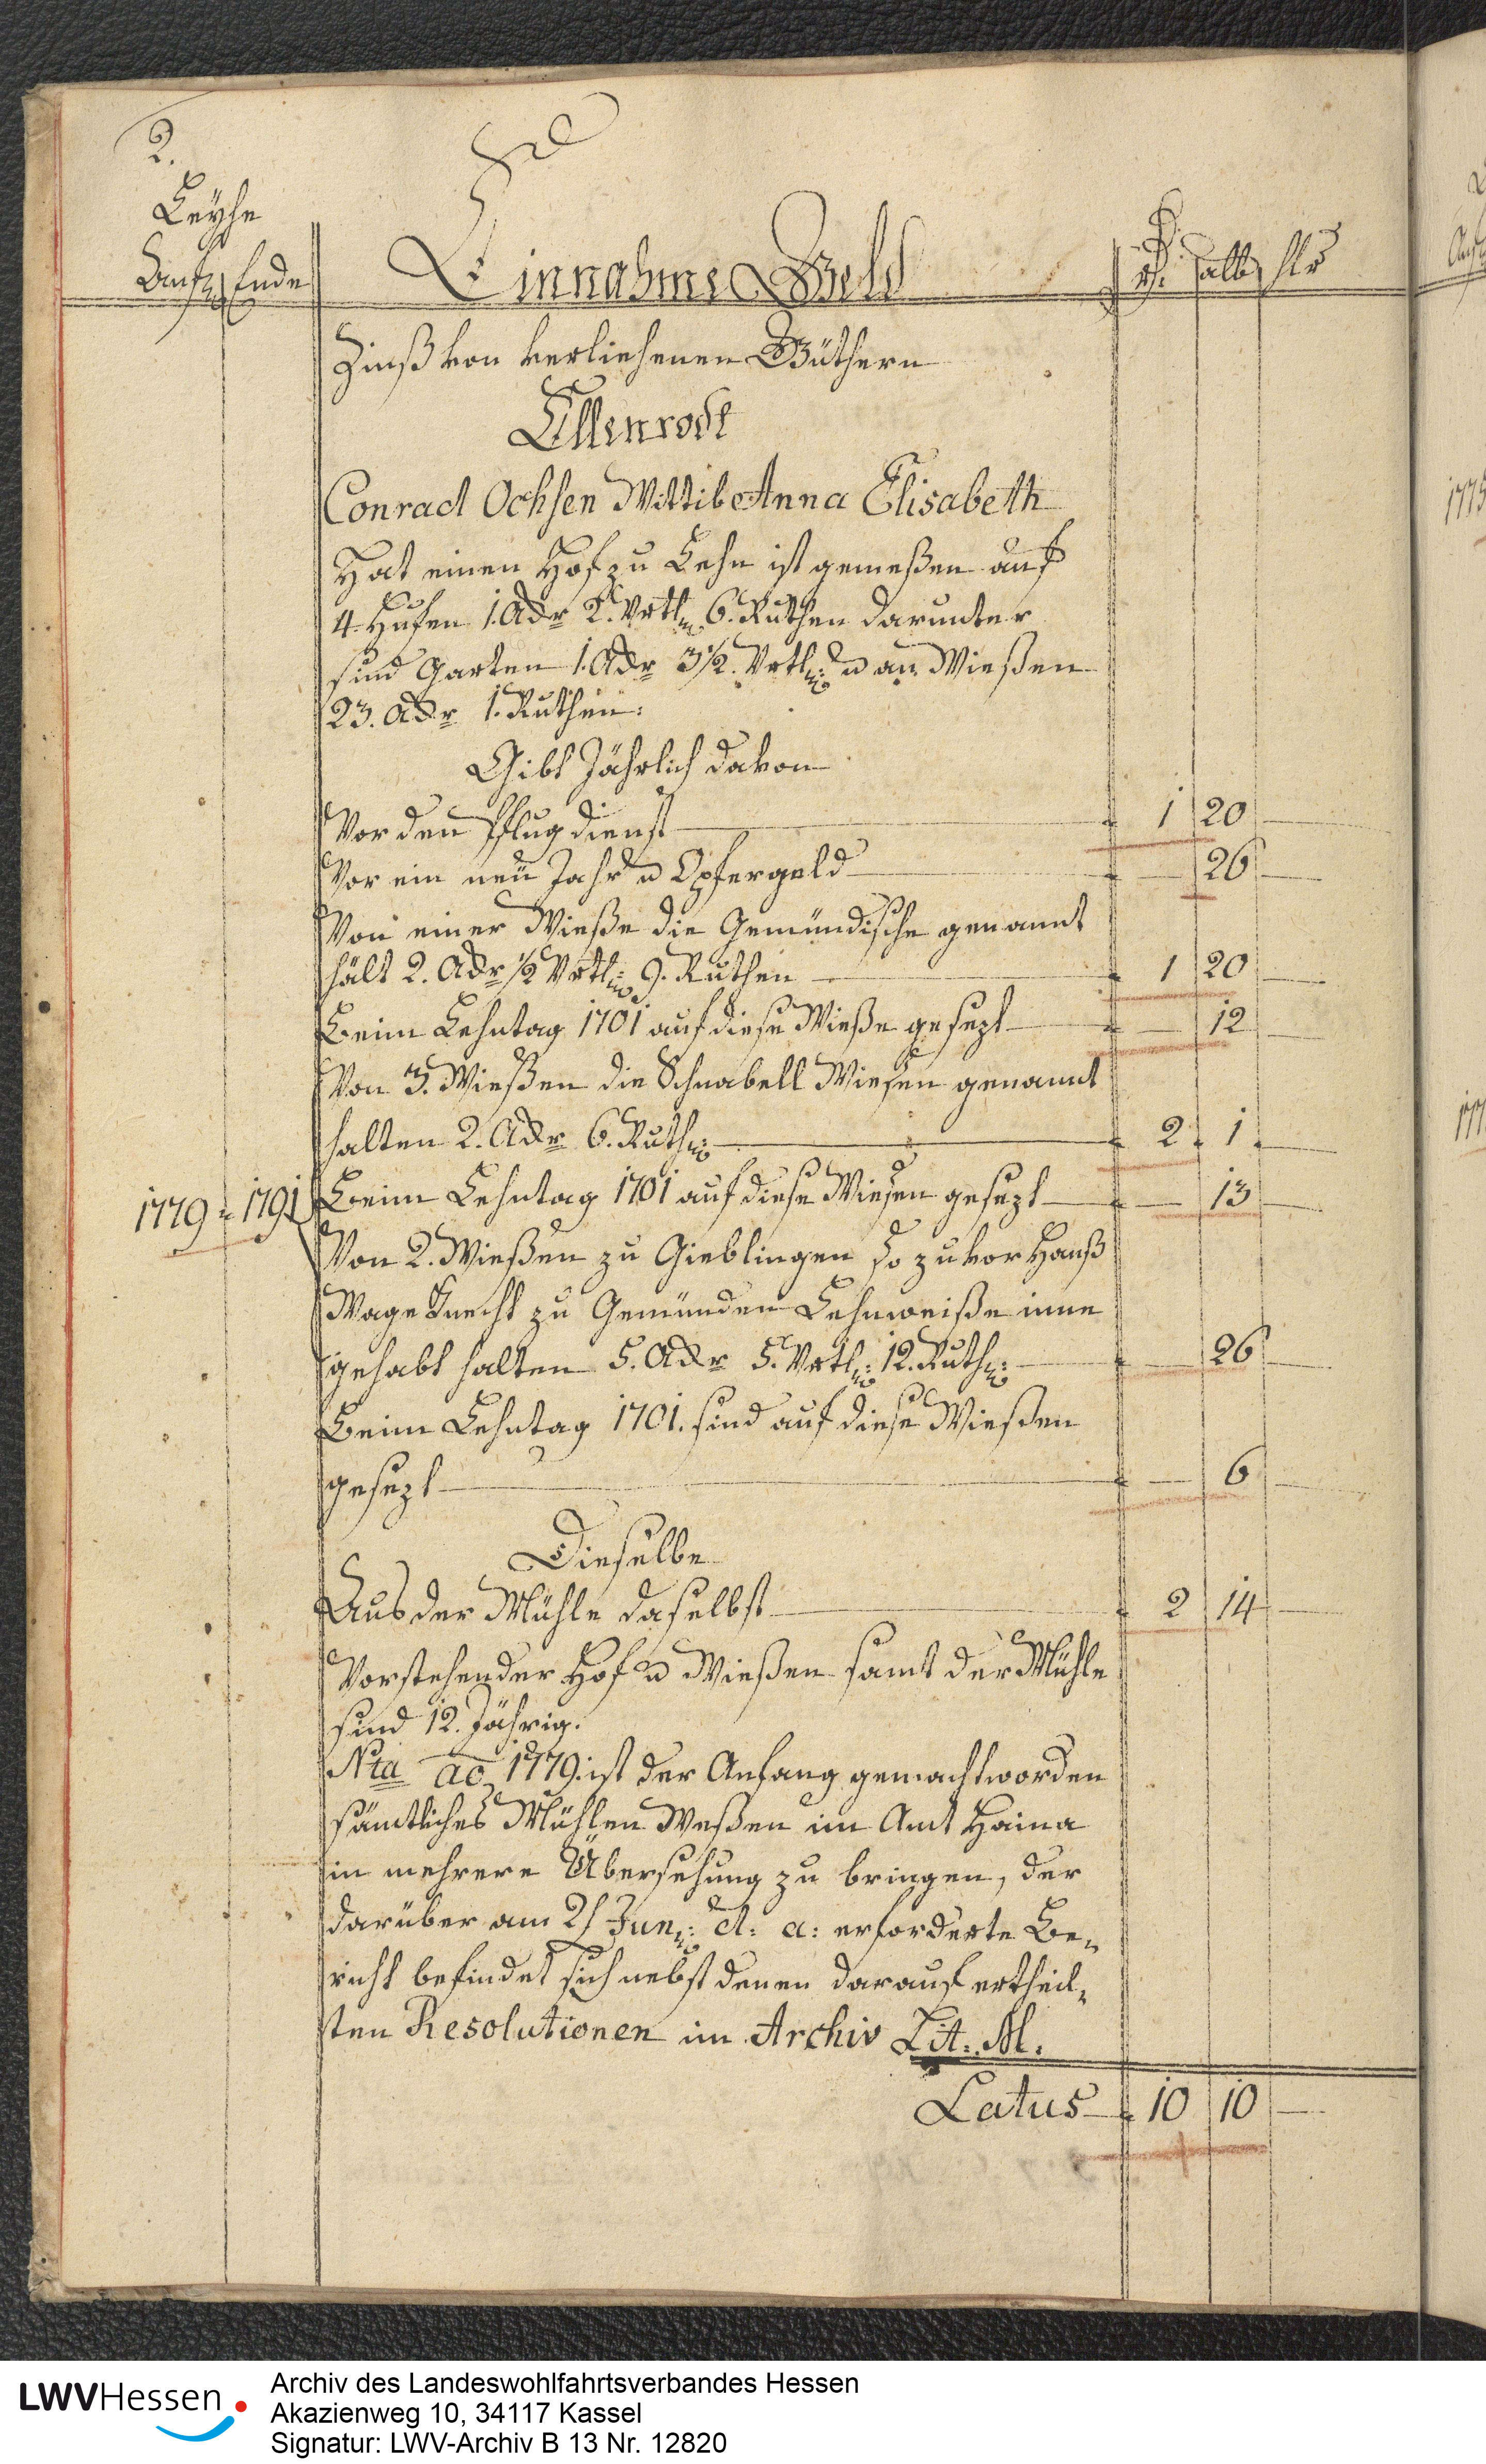 2.
Leyhe
Anf. Ende
Einnahme Geld
rth. alb hlr
Zinß von verliehenen Güthern
Ellenrode
Conrad Ochsen Wittib Anna Elisabeth
Hat einen Hof zu Lehn ist gemeßen auf
4. Hufen 1. Adr 2. Vrtl. 6. Ruthen darunter
sind Garten 1. Adr 3½. Vrtl: u an Wießen
23. Adr 1. Ruthen:
Gibt Jährlich davon
Vor den Pflugdienst 1 20 —
Vor ein neü Jahr u Opfergeld — 26 —
Von einer Wieße die Gemündische genannt
hält 2. Adr ½ Vrtl: 9. Ruthen 1 20 —
Beim Lehntag 1701 auf diese Wieße gesezt — 12 —
Von 3. Wießen die Schnabell Wiesen genannt
halten 2. Adr 6. Ruth: 2. 1. —
1779 - 1791 Beim Lehntag 1701 auf diese Wiesen gesezt — 13 —
Von 2. Wießen zu Gieblingen so zuvor Hanß
Wageknecht zu Gemünden Lehnweiße inne
gehabt halten 5. Adr 5. Vrtl: 12. Ruth: — 26 —
Beim Lehntag 1701. sind auf diese Wießen
gesezt — 6 —
Dieselbe
Aus der Mühle daselbst 2 14 —
Vorstehender Hof u Wießen samt der Mühle
sind 12. Jährig.
Nta ao 1779. ist der Anfang gemacht worden
sämtliches Mühlen Weßen im Amt Haina
in mehrere Übersehung zu bringen, der
darüber am Jun: d: a: erforderte Be„
richt befindet sich nebst denen darauf ertheil„
ten Resolutionen im Archiv Lit. M.
Latus 10 10 —
LWVHessen
Archiv des Landeswohlfahrtsverbandes Hessen
Akazienweg 10, 34117 Kassel
Signatur: LWV-Archiv B 13 Nr. 12820